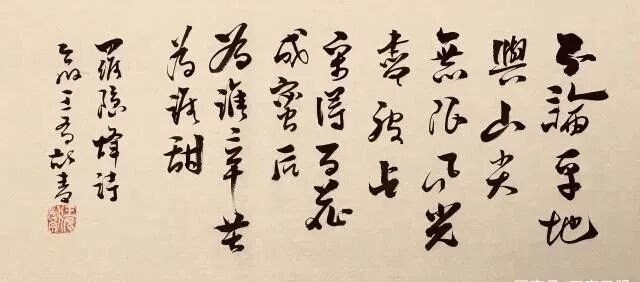 不論平地
與山尖
無限風光
盡被占
采得百花
成蜜后
為誰辛苦
為誰甜
羅隱蜂詩
王